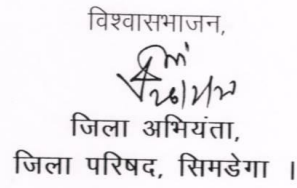 विश्वासभाजन,
जिला अभियंता,
जिला परिषद, सिमडेगा ।